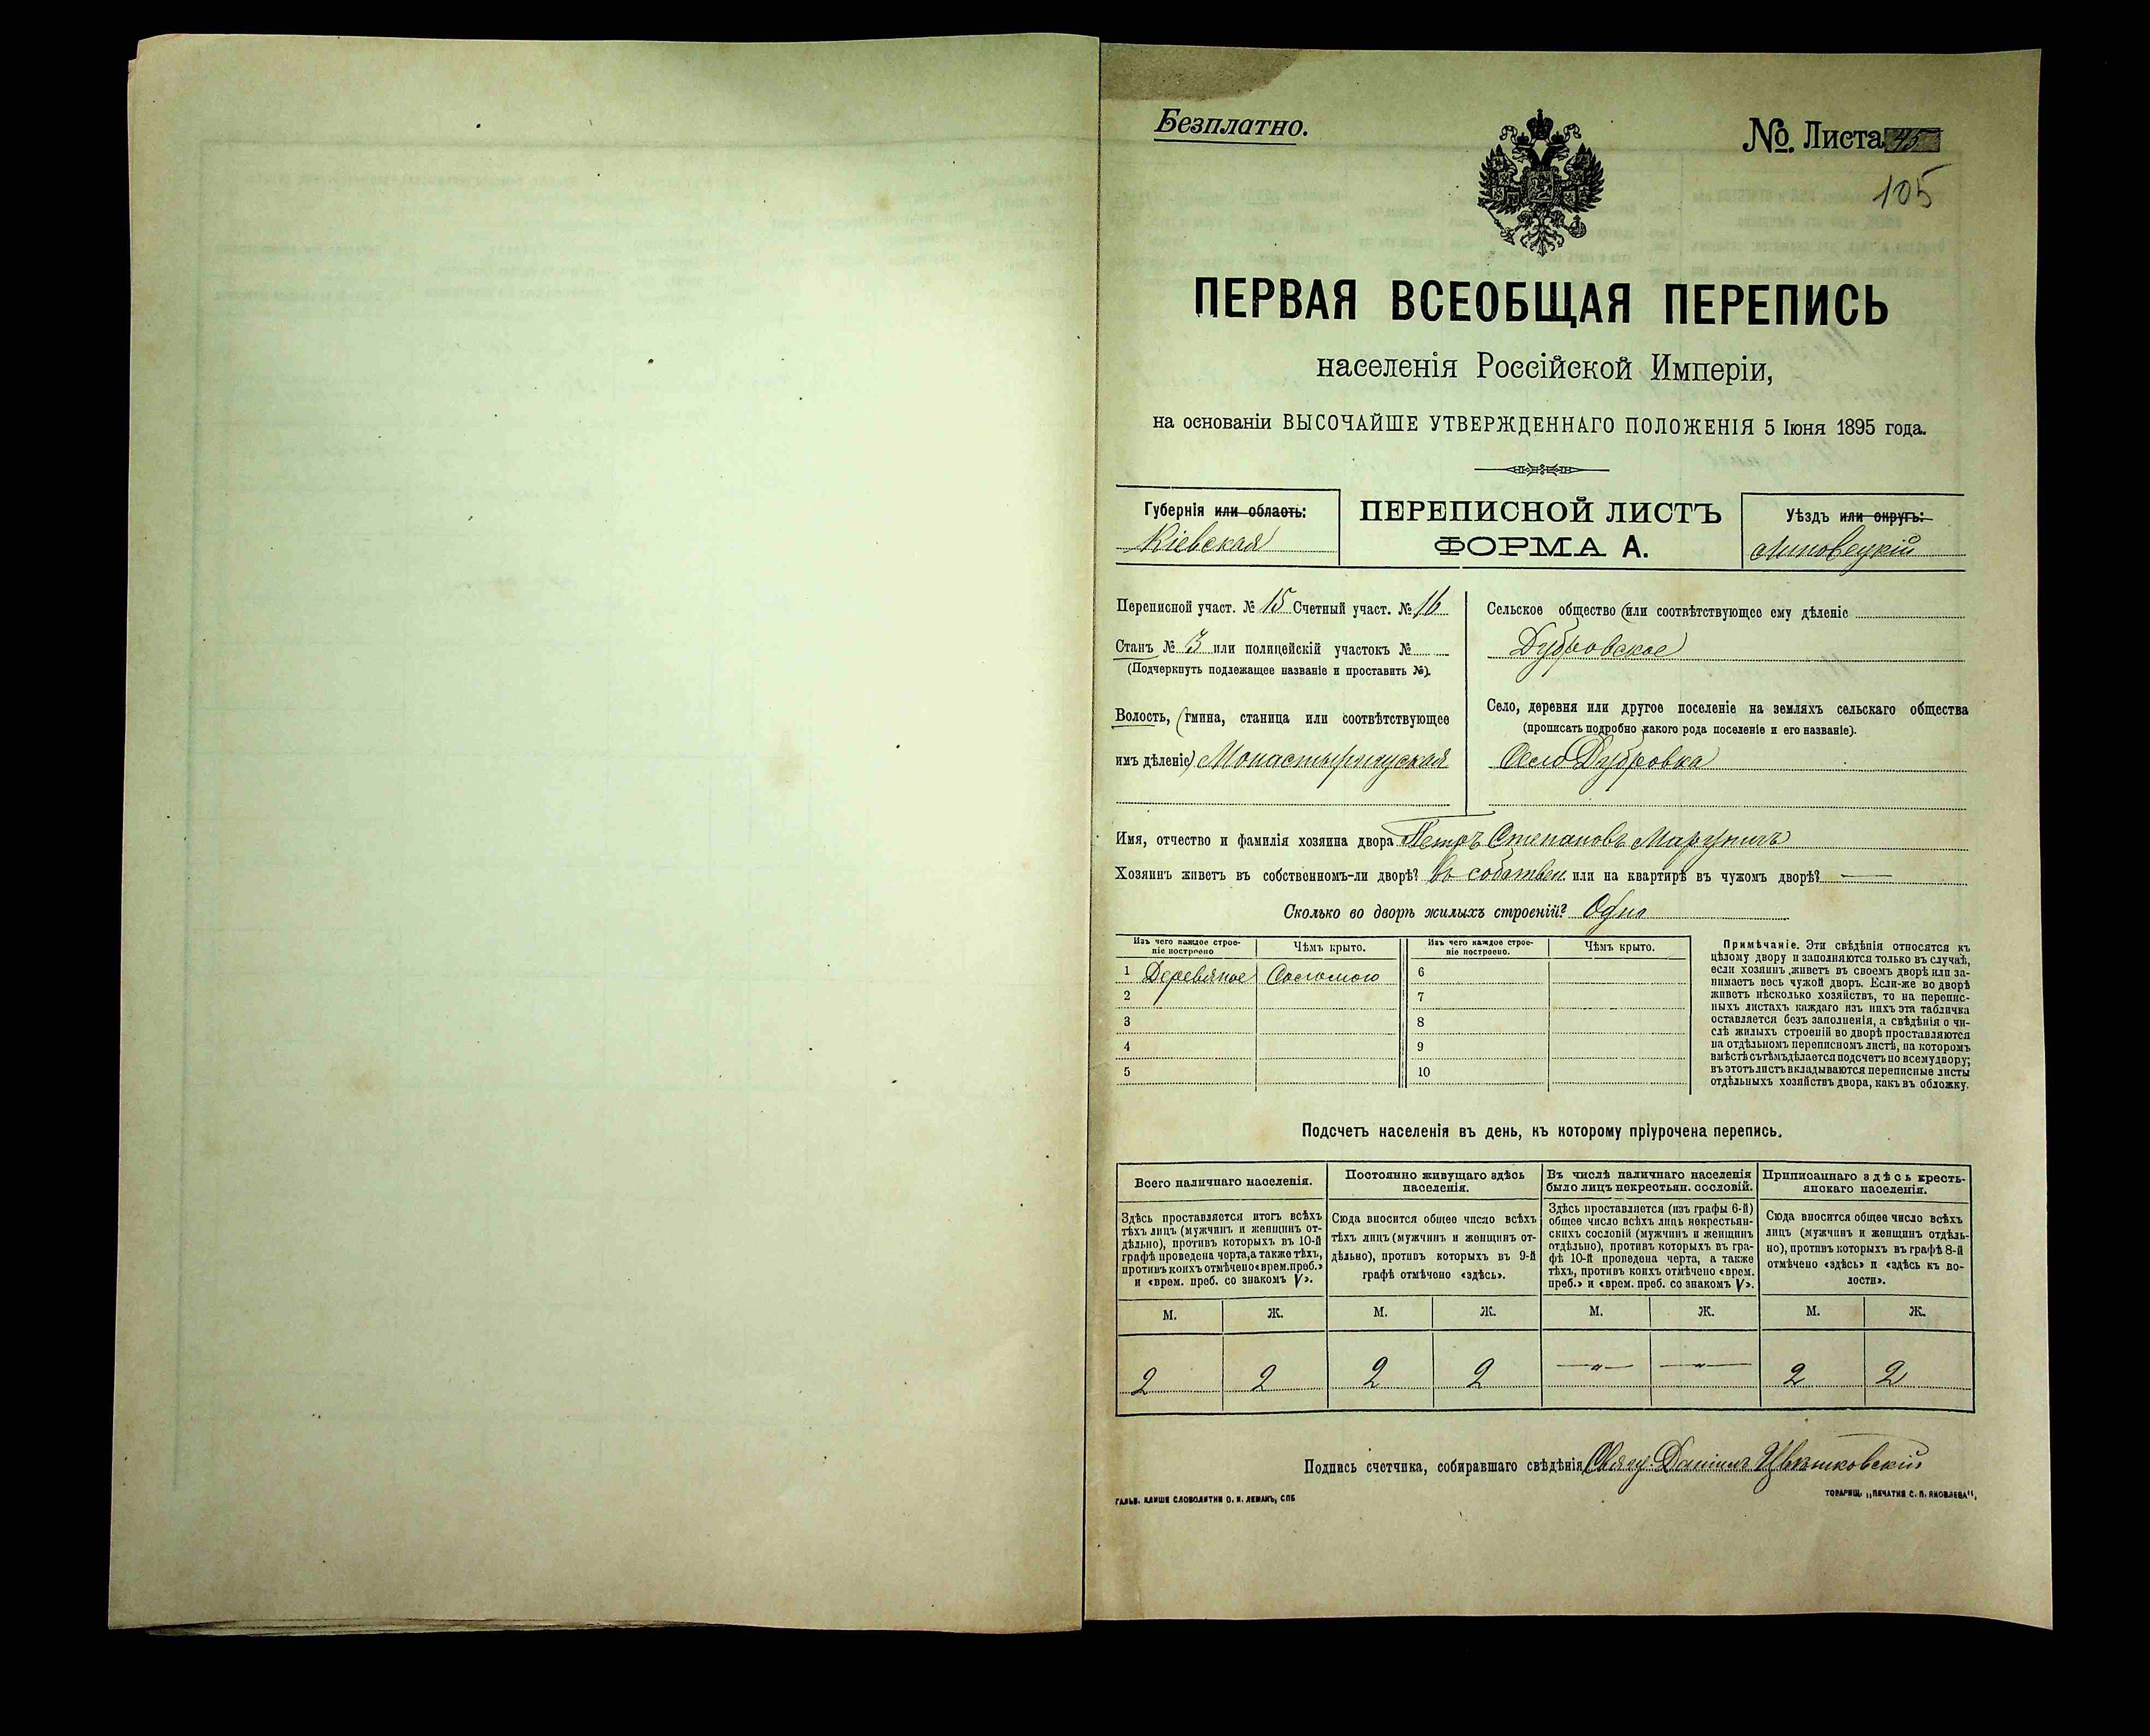 Безплатно.
№. Листа 45
105
ПЕРВАЯ ВСЕОБЩАЯ ПЕРЕПИСЬ
населенія Россійской Имперіи,
на основаніи ВЫСОЧАЙШЕ УТВЕРЖДЕННАГО ПОЛОЖЕНІЯ 5 Іюня 1895 года.
Губернія или область:
Кіевская
ПЕРЕПИСНОЙ ЛИСТЪ
ФОРМА А.
Уѣздъ или округъ:
Липовецкій
Переписной участ. № 15 Счетный участ. № 16
Станъ № 3 или полицейскій участокъ №
(Подчеркнуть подлежащее названіе и проставить №).
Волость, (гмина, станица или соотвѣтствующее
имъ дѣленіе) Монастырищуская
Сельское общество (или соотвѣтствующее ему дѣленіе
Дубровское
Село, деревня или другое поселеніе на земляхъ сельскаго общества
(прописать подробно какого рода поселеніе и его названіе).
Село Дубровка
Имя, отчество и фамилія хозяина двора Петръ Степановъ
Хозяинъ живетъ въ собственномъ-ли дворѣ? въ собствен. или на квартирѣ въ чужомъ дворѣ? —
Сколько во дворѣ жилыхъ строеній? Одно
Изъ чего каждое строе-
ніе построено
Чѣмъ крыто.
Изъ чего каждое строе-
ніе построено.
Чѣмъ крыто.
1 Деревяное Соломою 6
2 7
3 8
4 9
5 10
Примѣчаніе. Эти свѣдѣнія относятся къ
цѣлому двору и заполняются только въ случаѣ,
если хозяинъ живетъ въ своемъ дворѣ или за-
нимаетъ весь чужой дворъ. Если-же во дворѣ
живетъ нѣсколько хозяйствъ, то на перепис-
ныхъ листахъ каждаго изъ нихъ эта табличка
оставляется безъ заполненія, а свѣдѣнія о чи-
слѣ жилыхъ строеній во дворѣ проставляются
на отдѣльномъ переписномъ листѣ, на которомъ
вмѣстѣ съ тѣмъ дѣлается подсчетъ по всему двору;
въ этотъ листъ вкладываются переписные листы
отдѣльныхъ хозяйствъ двора, какъ въ обложку.
Подсчетъ населенія въ день, къ которому пріурочена перепись.
Всего наличнаго населенія.
Здѣсь проставляется итогъ всѣхъ
тѣхъ лицъ (мужчинъ и женщинъ от-
дѣльно), противъ которыхъ въ 10-й
графѣ проведена черта, а также тѣхъ,
противъ коихъ отмѣчено «врем. преб.»
и «врем. преб. со знакомъ V».
Постоянно живущаго здѣсь
населенія.
Сюда вносится общее число всѣхъ
тѣхъ лицъ (мужчинъ и женщинъ от-
дѣльно), противъ которыхъ въ 9-й
графѣ отмѣчено «здѣсь».
Въ числѣ наличнаго населенія
было лицъ некрестьян. сословій.
Здѣсь проставляется (изъ графы 6-й)
общее число всѣхъ лицъ некрестьян-
скихъ сословій (мужчинъ и женщинъ
отдѣльно), противъ которыхъ въ гра-
фѣ 10-й проведена черта, а также
тѣхъ, противъ коихъ отмѣчено «врем.
преб.» и «врем. преб. со знакомъ V».
Приписаннаго здѣсь кресть-
янскаго населенія.
Сюда вносится общее число всѣхъ
лицъ (мужчинъ и женщинъ отдѣль-
но), противъ которыхъ въ графѣ 8-й
отмѣчено «здѣсь» и «здѣсь къ во-
лости».
М. Ж. М. Ж. М. Ж. М. Ж.
2 2 2 2 —"— —"— 2 2
Подпись счетчика, собиравшаго свѣдѣнія Даніилъ Цвѣтковскій
ГАЛЬВ. КЛИШЕ СЛОВОЛИТНИ О. И. ЛЕМАНЪ, СПБ
ТОВАРИЩ. „ПЕЧАТНЯ С. П. ЯКОВЛЕВА".